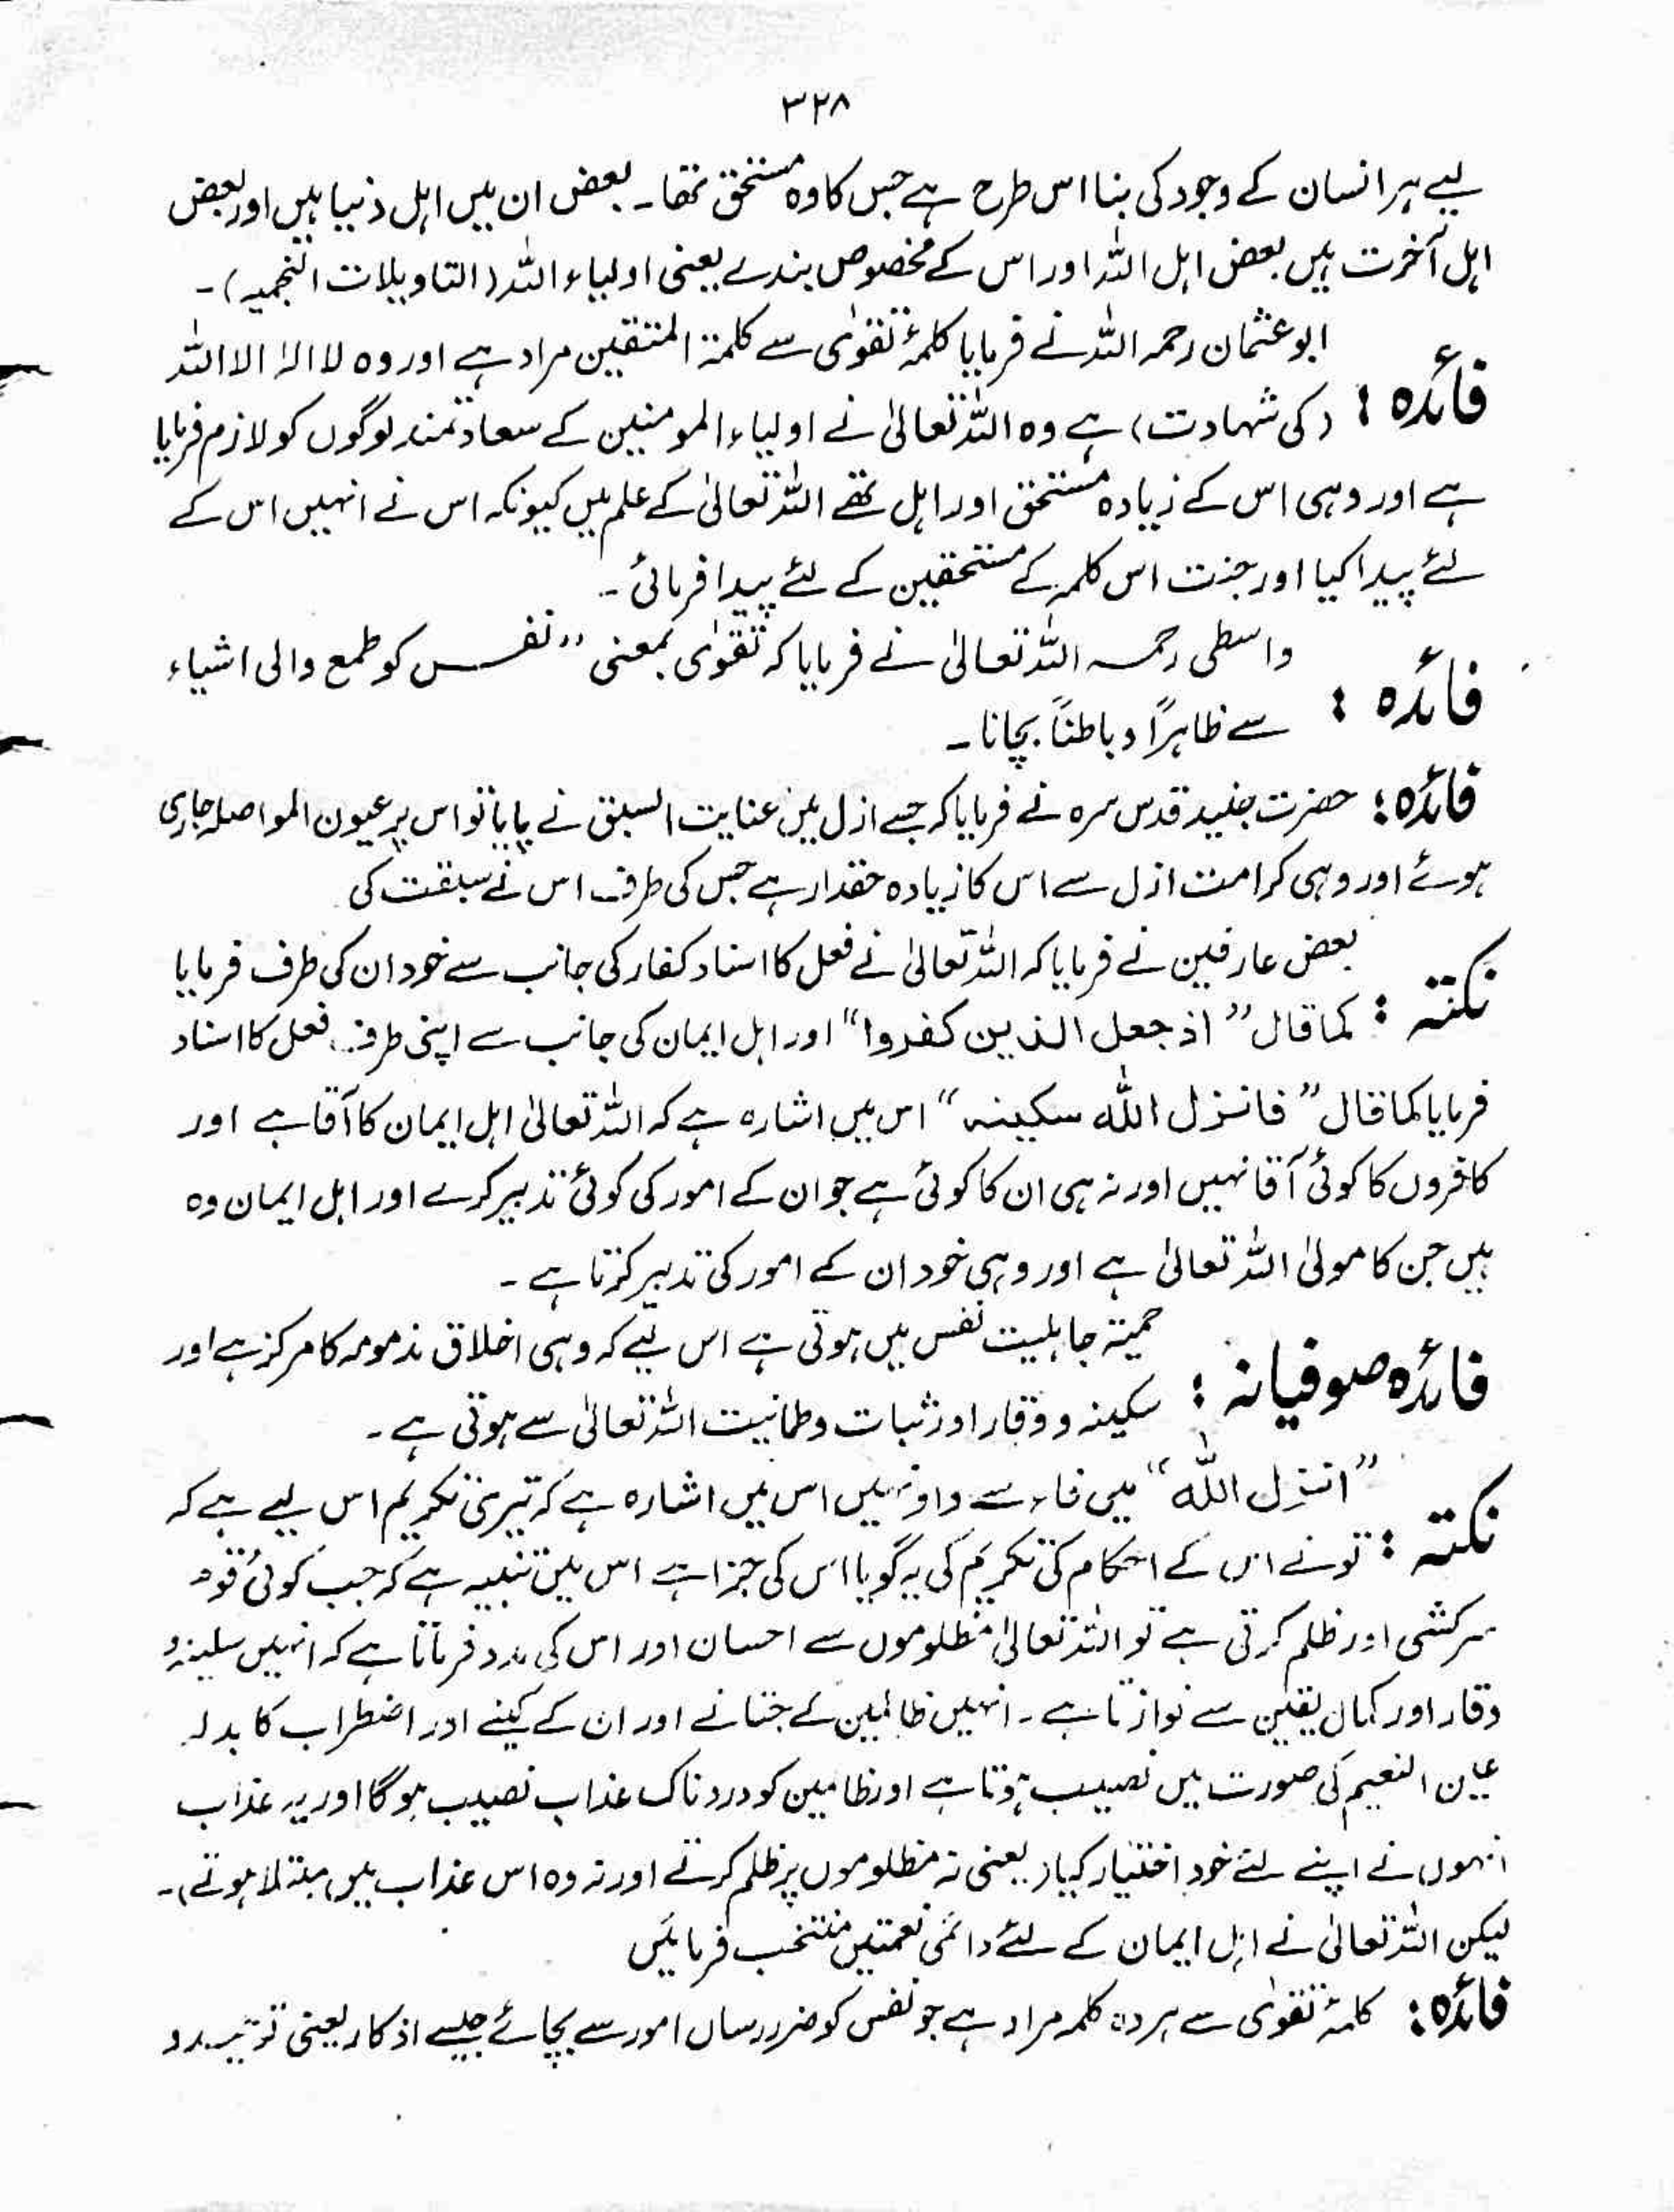 ۳۲۸
لیے ہر انسان کے وجود کی بنا اس طرح ہے جس کا وہ مستحق تھا۔ بعض ان میں اہل دنیا ہیں اور بعض
اہل آخرت ہیں بعض اہل اللہ اور اس کے مخصوص بندے یعنی اولیاء اللہ (التاویلات النجمیہ)۔
ابو عثمان رحمہ اللہ نے فرمایا کلمۂ تقویٰ سے کلمۃ المتقین مراد ہے اور وہ لا الٰہ الا اللہ
فائدہ : (کی شہادت) ہے وہ اللہ تعالیٰ نے اولیاء المومنین کے سعادتمند لوگوں کو لازم فرمایا
ہے اور وہی اس کے زیادہ مستحق اور اہل تھے اللہ تعالیٰ کے علم میں کیونکہ اس نے انہیں اس کے
لئے پیدا کیا اور جنت اس کلمہ کے مستحقین کے لئے پیدا فرمائی ۔
واسطی رحمہ اللہ تعالیٰ نے فرمایا کہ تقویٰ بمعنی ”نفس کو طمع والی اشیاء
فائدہ : سے ظاہرًا و باطنًا بچانا ۔
فائدہ : حضرت جنید قدس سرہ نے فرمایا کہ جسے ازل میں عنایت السبق نے پایا تو اس پر عیون المواصلہ جاری
ہوئے اور وہی کرامت ازل سے اس کا زیادہ حقدار ہے جس کی طرف اس نے سبقت کی
بعض عارفین نے فرمایا کہ اللہ تعالیٰ نے فعل کا اسناد کفار کی جانب سے خود ان کی طرف فرمایا
نکتہ : کما قال ”اذ جعل الذین کفروا“ اور اہل ایمان کی جانب سے اپنی طرف فعل کا اسناد
فرمایا کما قال ”فانزل اللہ سکینہ“ اس میں اشارہ ہے کہ اللہ تعالیٰ اہل ایمان کا آقا ہے اور
کافروں کا کوئی آقا نہیں اور نہ ہی ان کا کوئی ہے جو ان کے امور کی کوئی تدبیر کرے اور اہل ایمان وہ
ہیں جن کا مولیٰ اللہ تعالیٰ ہے اور وہی خود ان کے امور کی تدبیر کرتا ہے ۔
حمیۃ جاہلیت نفس میں ہوتی ہے اس لیے کہ وہی اخلاق مذمومہ کا مرکز ہے اور
فائدہ صوفیانہ : سکینہ و وقار اور ثبات و طمانیت اللہ تعالیٰ سے ہوتی ہے ۔
”انزل اللہ“ میں فاء سے واو نہیں اس میں اشارہ ہے کہ تیری تکریم اس لیے ہے کہ
نکتہ : تو نے اس کے احکام کی تکریم کی یہ گویا اس کی جزا ہے اس میں تنبیہ ہے کہ جب کوئی قوم
سرکشی اور ظلم کرتی ہے تو اللہ تعالیٰ مظلوموں سے احسان اور اس کی مدد فرماتا ہے کہ انہیں سکینہ و
وقار اور کمال یقین سے نوازتا ہے ۔ انہیں ظالمین کے جتانے اور ان کے کینے اور اضطراب کا بدلہ
النعیم کی صورت میں نصیب ہوتا ہے اور ظالمین کو دردناک عذاب نصیب ہوگا اور یہ عذاب
انہوں نے اپنے لئے خود اختیار کیا (یعنی نہ مظلوموں پر ظلم کرتے اور نہ وہ اس عذاب میں مبتلا ہوتے)۔
لیکن اللہ تعالیٰ نے اہل ایمان کے لئے دائمی نعمتیں منتخب فرمائیں
فائدہ : کلمۂ تقویٰ سے ہر وہ کلمہ مراد ہے جو نفس کو ضرر رساں امور سے بچائے جیسے اذکار یعنی توحید و